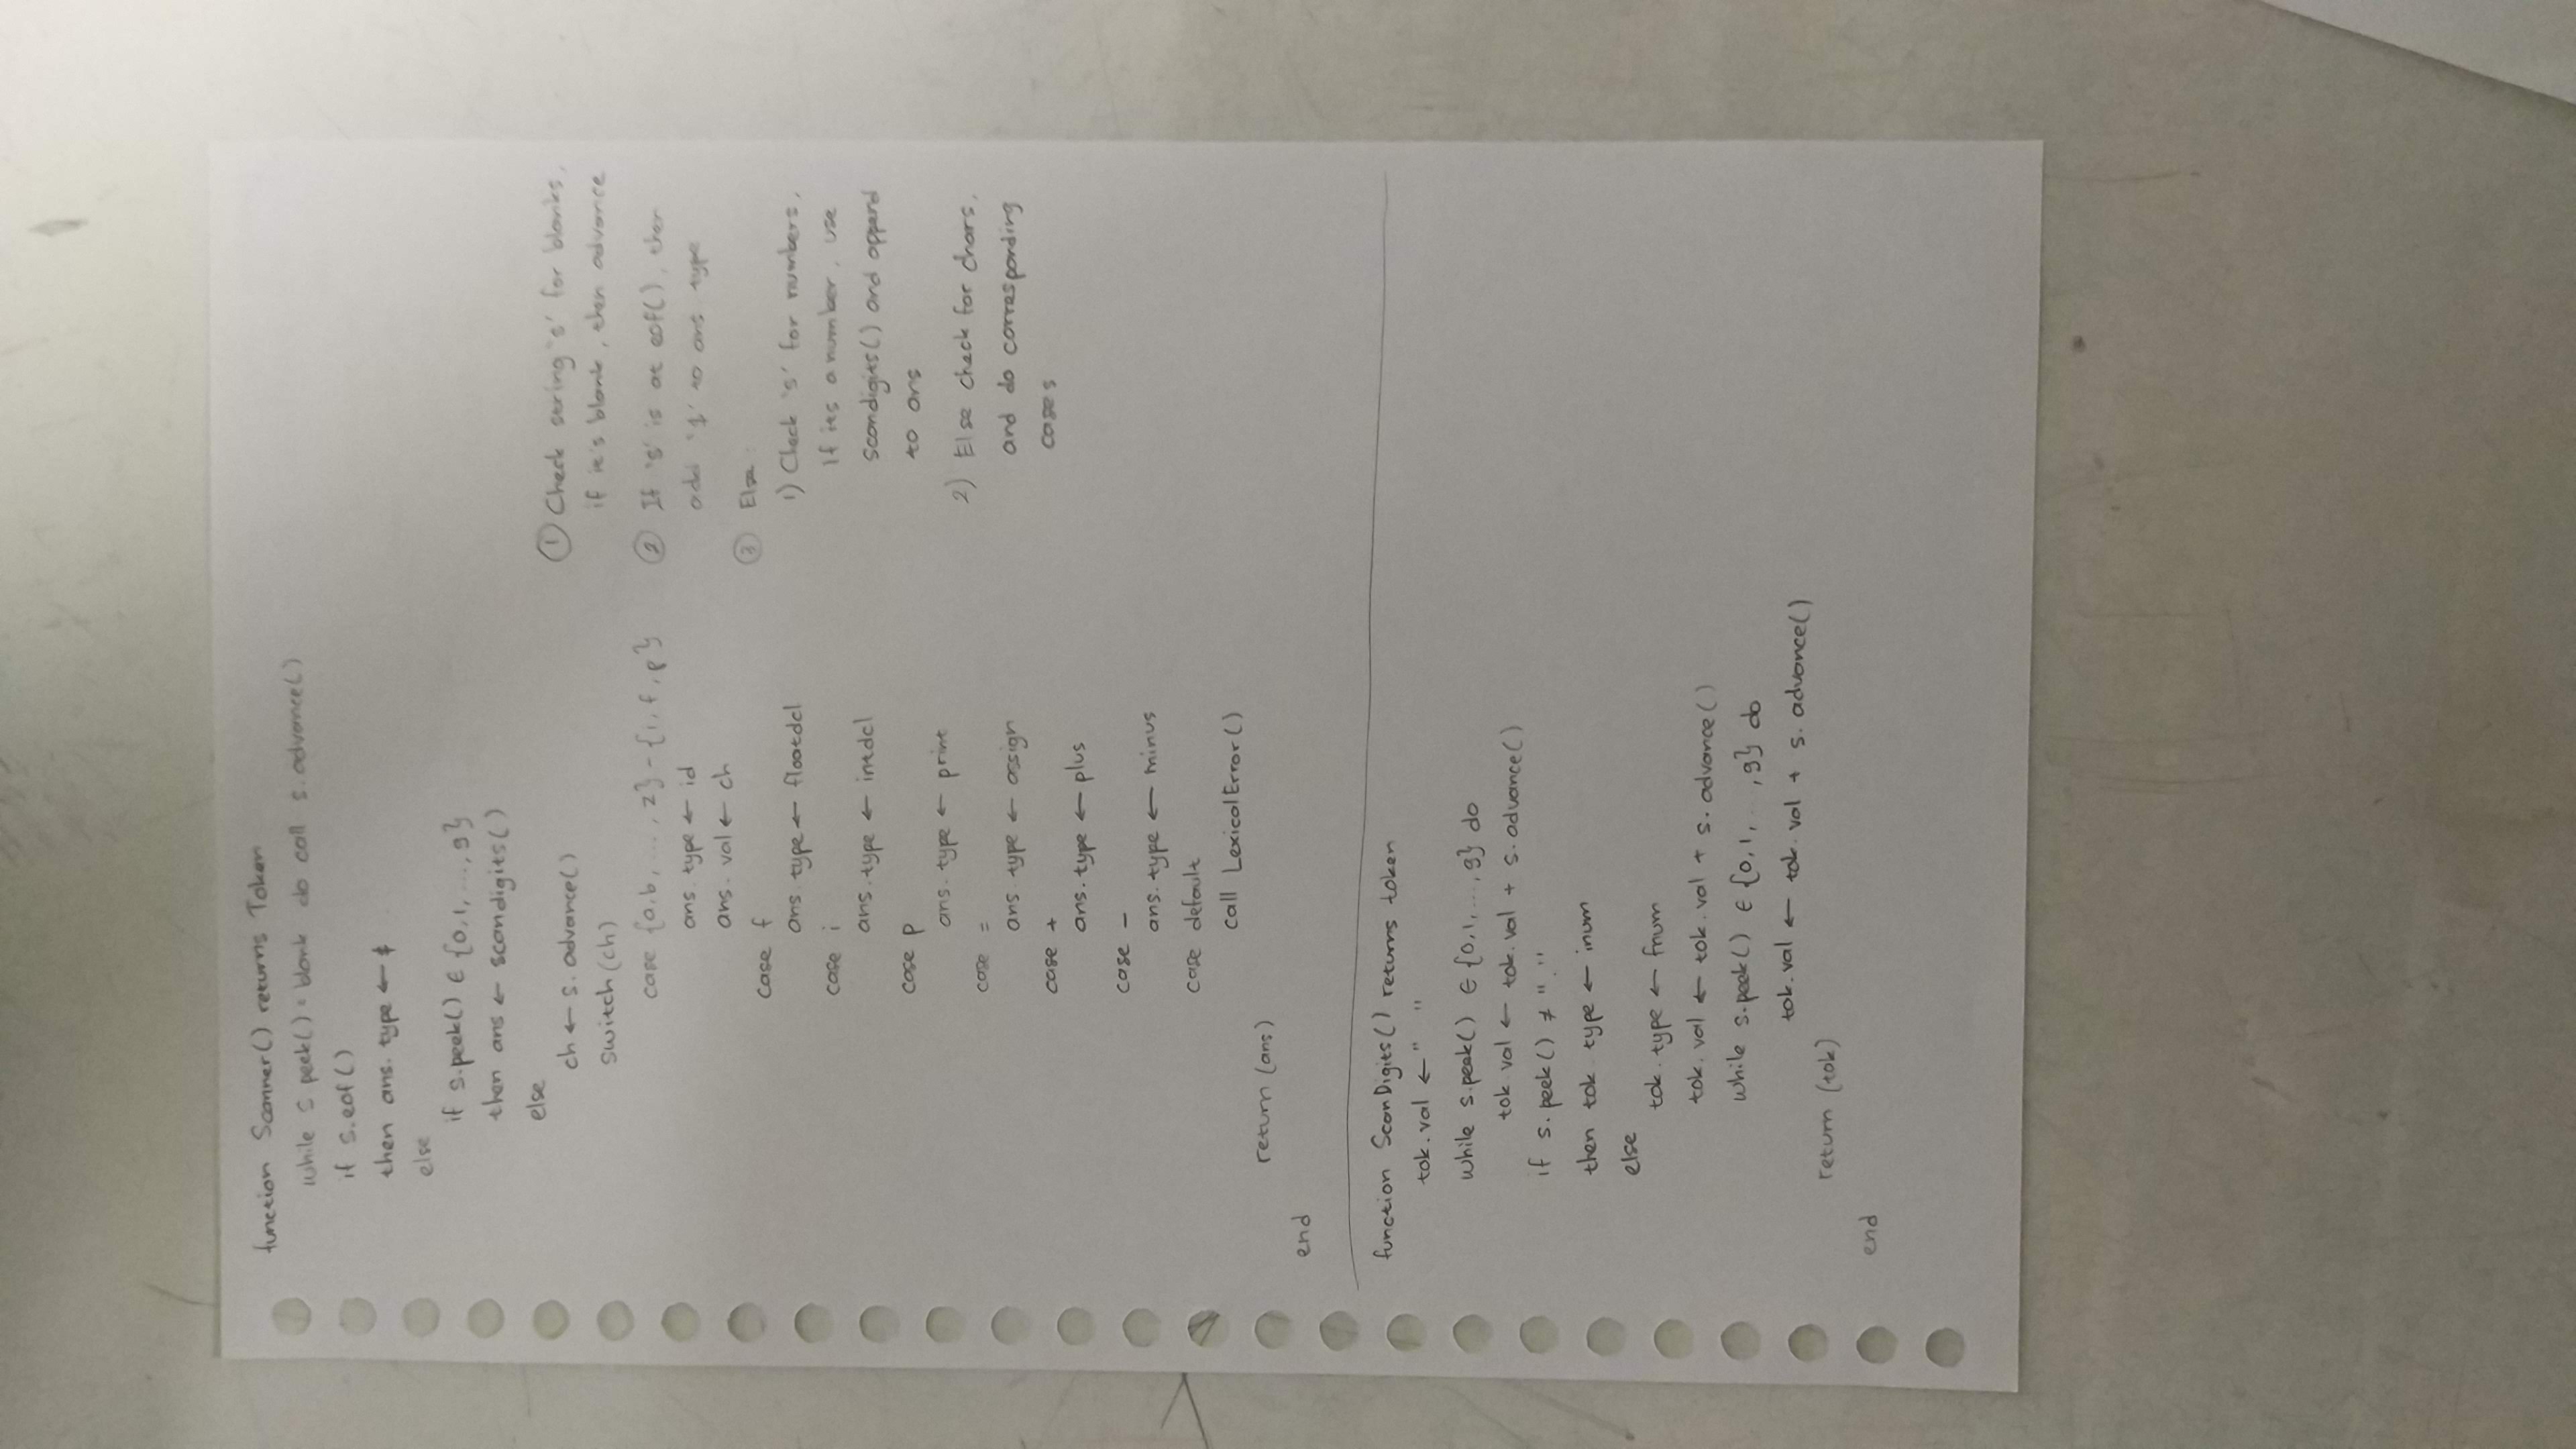 function Scanner() returns Token
while s.peek() = blank do call s.advance()
if s.eof()
then ans.type ← $
else
if s.peek() ∈ {0,1,...,9}
then ans ← scandigits()
else
ch ← s.advance()
switch(ch)
case {a,b,...,z} - {i,f,p}
ans.type ← id
ans.val ← ch
case f
ans.type ← floatdcl
case i
ans.type ← intdcl
case p
ans.type ← print
case =
ans.type ← assign
case +
ans.type ← plus
case -
ans.type ← minus
case default
call LexicalError()
return (ans)
end
① Check string 's' for blanks,
if it's blank, then advance
② If 's' is at eof(), then
add '$' to ans type
③ Else:
1) Check 's' for numbers,
If its a number, use
scandigits() and append
to ans
2) Else check for chars,
and do corresponding
cases
function ScanDigits() returns token
tok.val ← " "
while s.peek() ∈ {0,1,...,9} do
tok.val ← tok.val + s.advance()
if s.peek() ≠ "."
then tok.type ← inum
else
tok.type ← fnum
tok.val ← tok.val + s.advance()
while s.peek() ∈ {0,1,...,9} do
tok.val ← tok.val + s.advance()
return (tok)
end